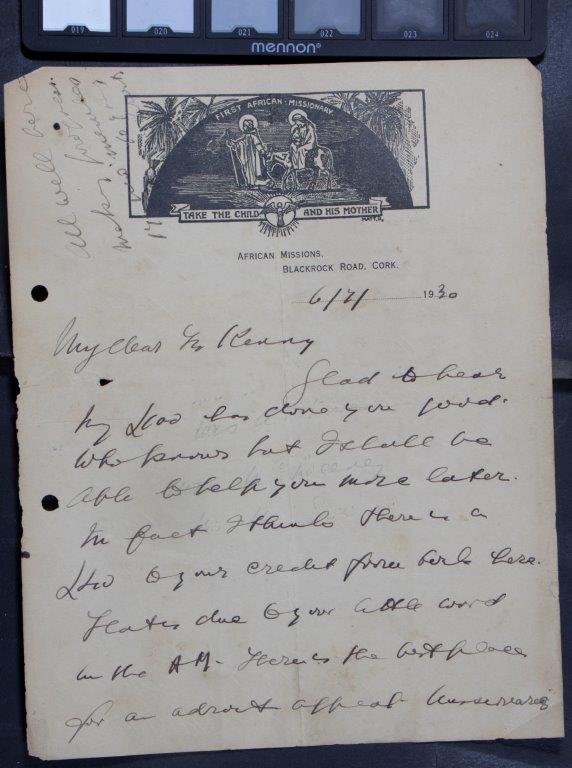 019 020 021 022 023 024
mennon®
All well here
FIRST AFRICAN·MISSIONARY
TAKE THE CHILD AND HIS MOTHER
AFRICAN MISSIONS,
BLACKROCK ROAD, CORK.
6/7/ 1930
My dear Fr Kenny
Glad to hear
my £100 has done you good.
Who knows but I shall be
able to help you more later.
In fact I think there is a
£100 to your credit from here.
That is due to your little word
in the AM. There is the best place
for an adroit appeal